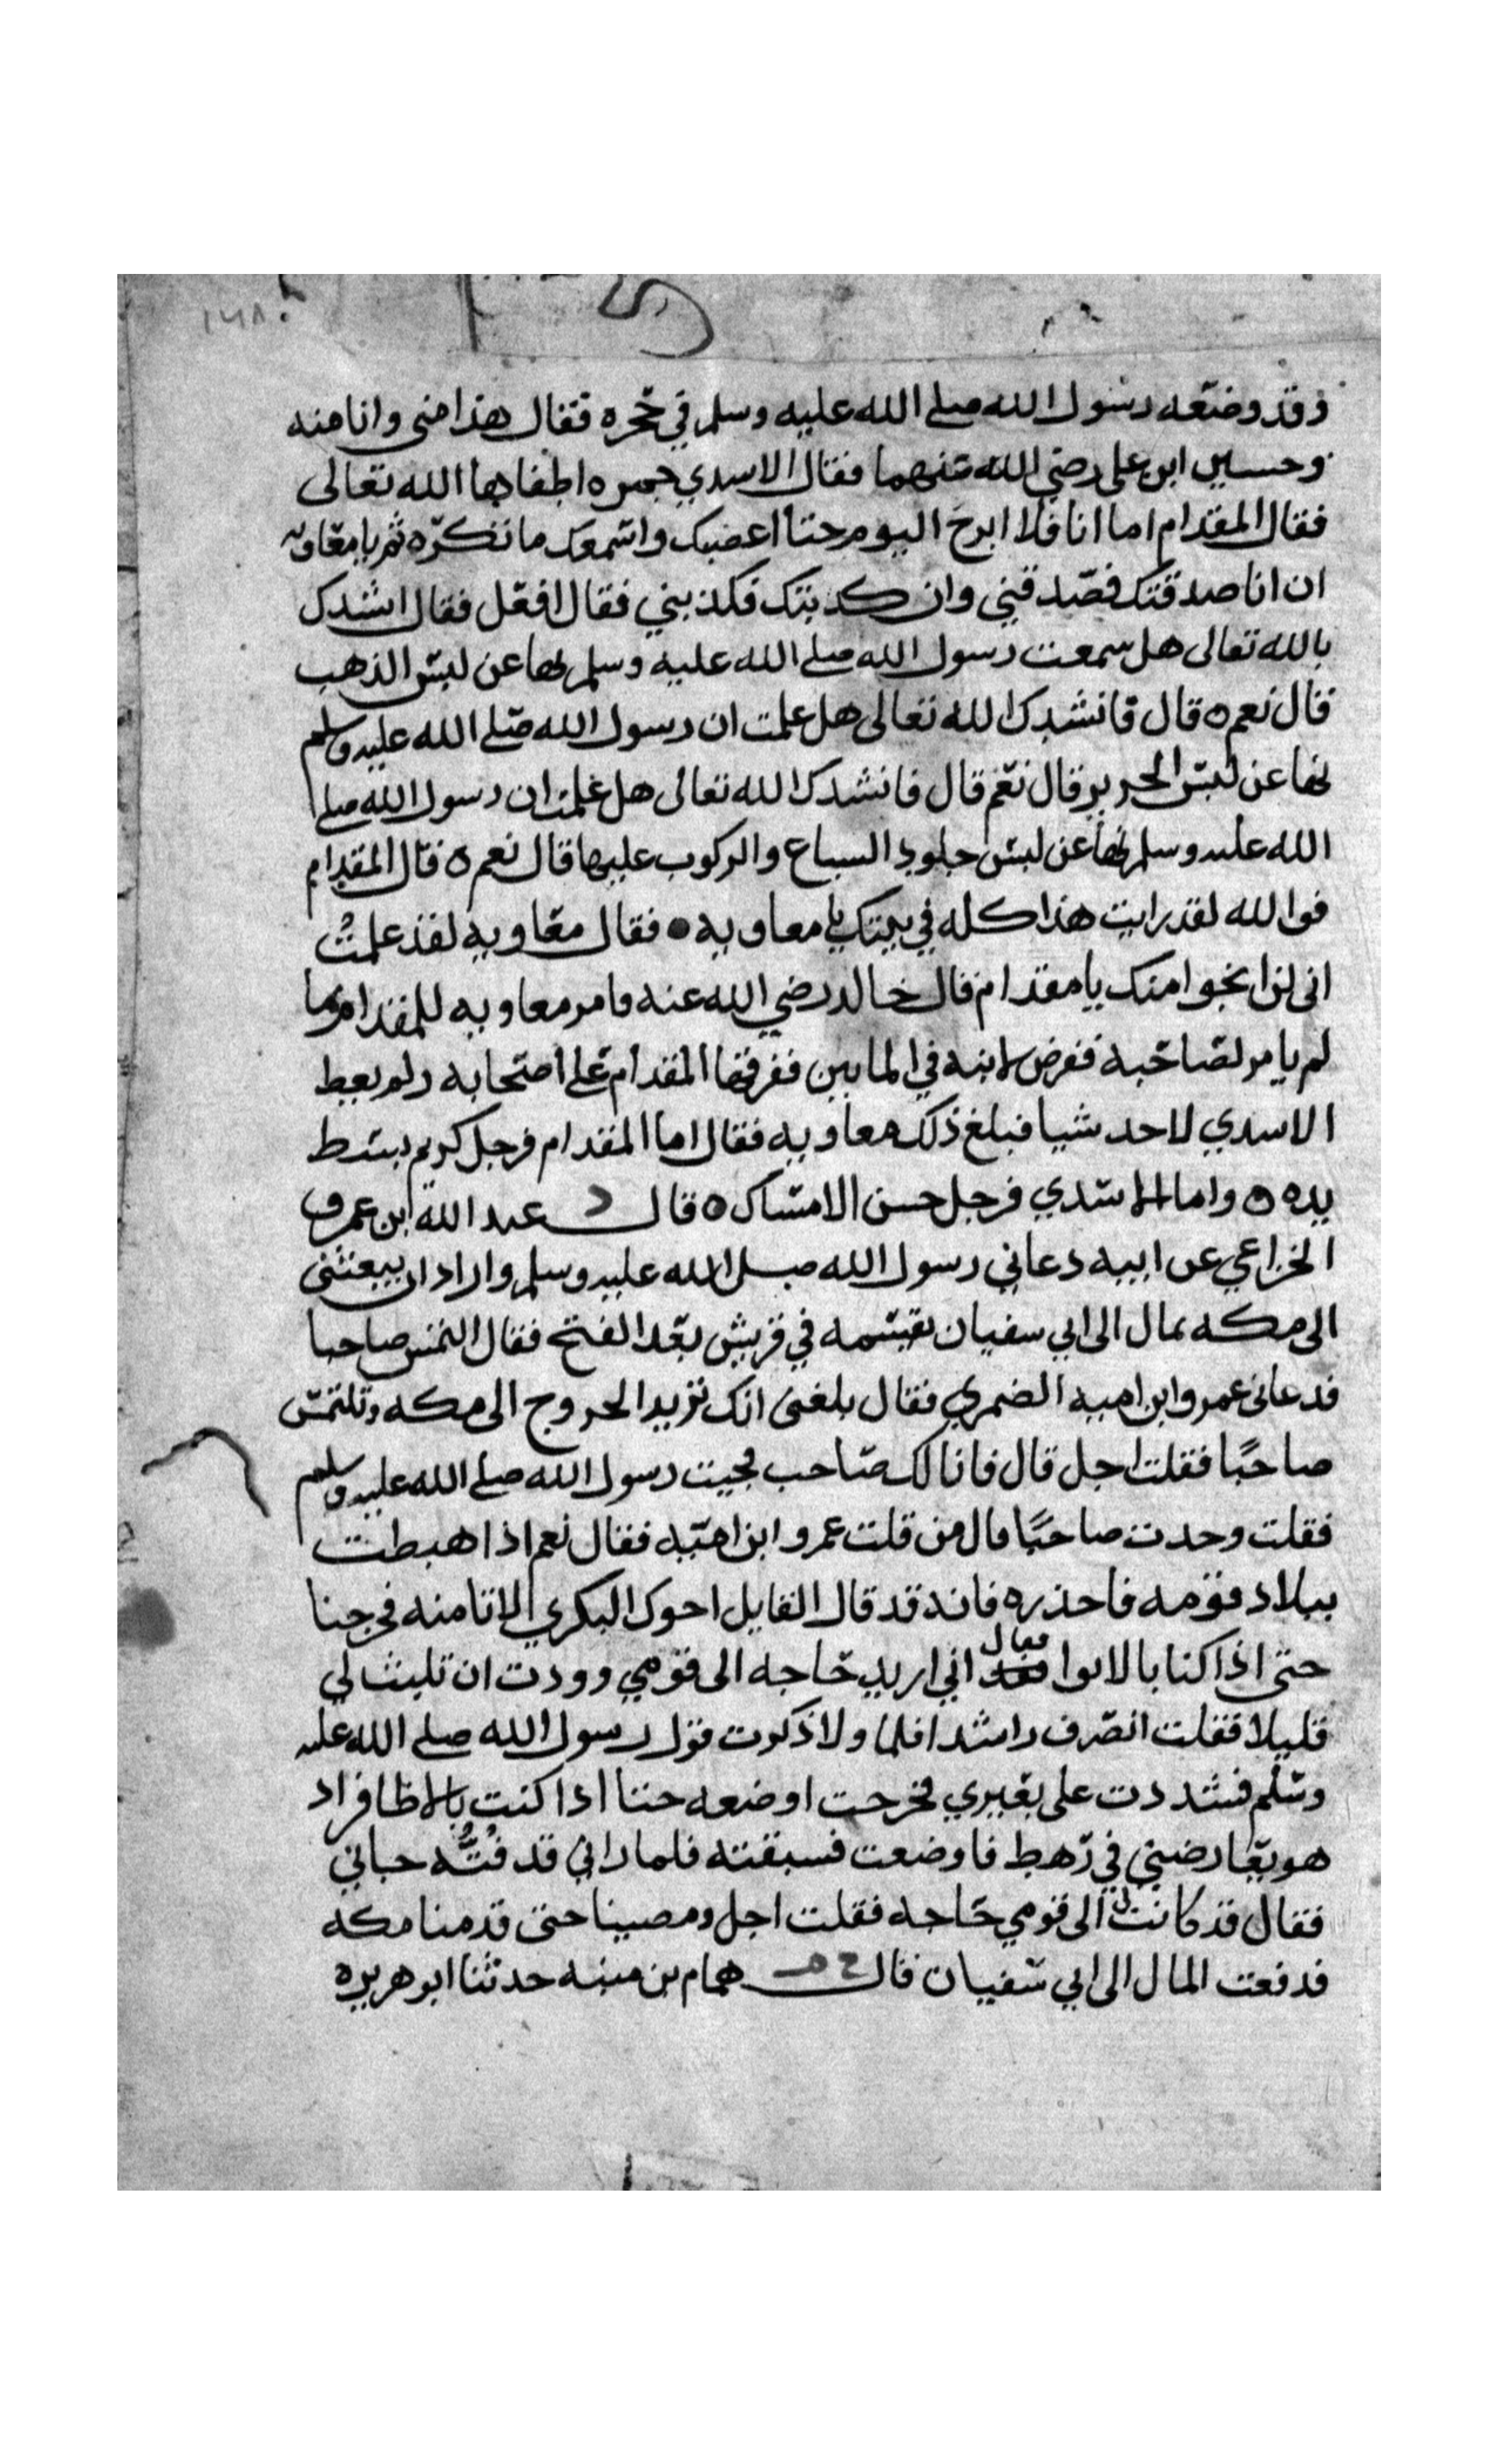 ١٦٨
وقد وضعه رسول الله صلى الله عليه وسلم في حجره فقال هذا مني وانا منه
وحسين ابن على رضي الله عنهما فقال الاسدي جمره اطفاها الله تعالى
فقال المقدام اما انا فلا ابرح اليوم حتا اغضبك واسمعك ما تكره ثم يا معاويه
ان انا صدقتك فصدقني وان كذبتك فكذبني فقال افعل فقال انشدك
بالله تعالى هل سمعت رسول الله صلى الله عليه وسلم نها عن لبس الذهب
قال نعم ه قال فانشدك الله تعالى هل علمت ان رسول الله صلى الله عليه وسلم
نها عن لبس الحرير قال نعم قال فانشدك الله تعالى هل علمت ان رسول الله صلى
الله عليه وسلم نها عن لبس جلود السباع والركوب عليها قال نعم ه قال المقدام
فوالله لقد رايت هذا كله في بيتك يا معاويه ه فقال معاويه لقد علمت
انى لن انجوا منك يا مقدام قال خالد رضي الله عنه فامر معاويه للمقدام بما
لم يامر لصاحبه ففرض لابنه في المايين ففرقها المقدام على اصحابه ولم يعط
الاسدي لاحد شيا فبلغ ذلك معاويه فقال اما المقدام فرجل كريم بسط
يده ه واما الاسدي فرجل حسن الامساك ه قال د عبد الله ابن عمرو
الخزاعي عن ابيه دعاني رسول الله صلى الله عليه وسلم واراد ان يبعثنى
الى مكه بمال الى ابي سفيان يقسمه في قريش بعد الفتح فقال التمس صاحبا
فدعانى عمرو ابن اميه الضمري فقال بلغنى انك تريد الخروج الى مكه وتلتمس
صاحبا فقلت اجل قال فانا لك صاحب فجيت رسول الله صلى الله عليه وسلم
فقلت وجدت صاحبا قال من قلت عمرو ابن اميه فقال نعم اذا هبطت
ببلاد قومه فاحذره فانه قد قال القايل اخوك البكري لا تامنه فخرجنا
حتى اذا كنا بالابوا فقال انى اريد حاجه الى قومي ووددت ان تلبث لي
قليلا فقلت انصرف راشدا فلما ولا ذكرت قول رسول الله صلى الله عليه
وسلم فشددت على بعيري فخرجت اوضعه حتا اذا كنت بالاظافر اذ
هو يعارضني في رهط فاوضعت فسبقته فلما راني قد فته جاني
فقال قد كانت لي الى قومي حاجه فقلت اجل ومضينا حتى قدمنا مكه
فدفعت المال الى ابي سفيان قال خ م همام بن منبه حدثنا ابو هريره